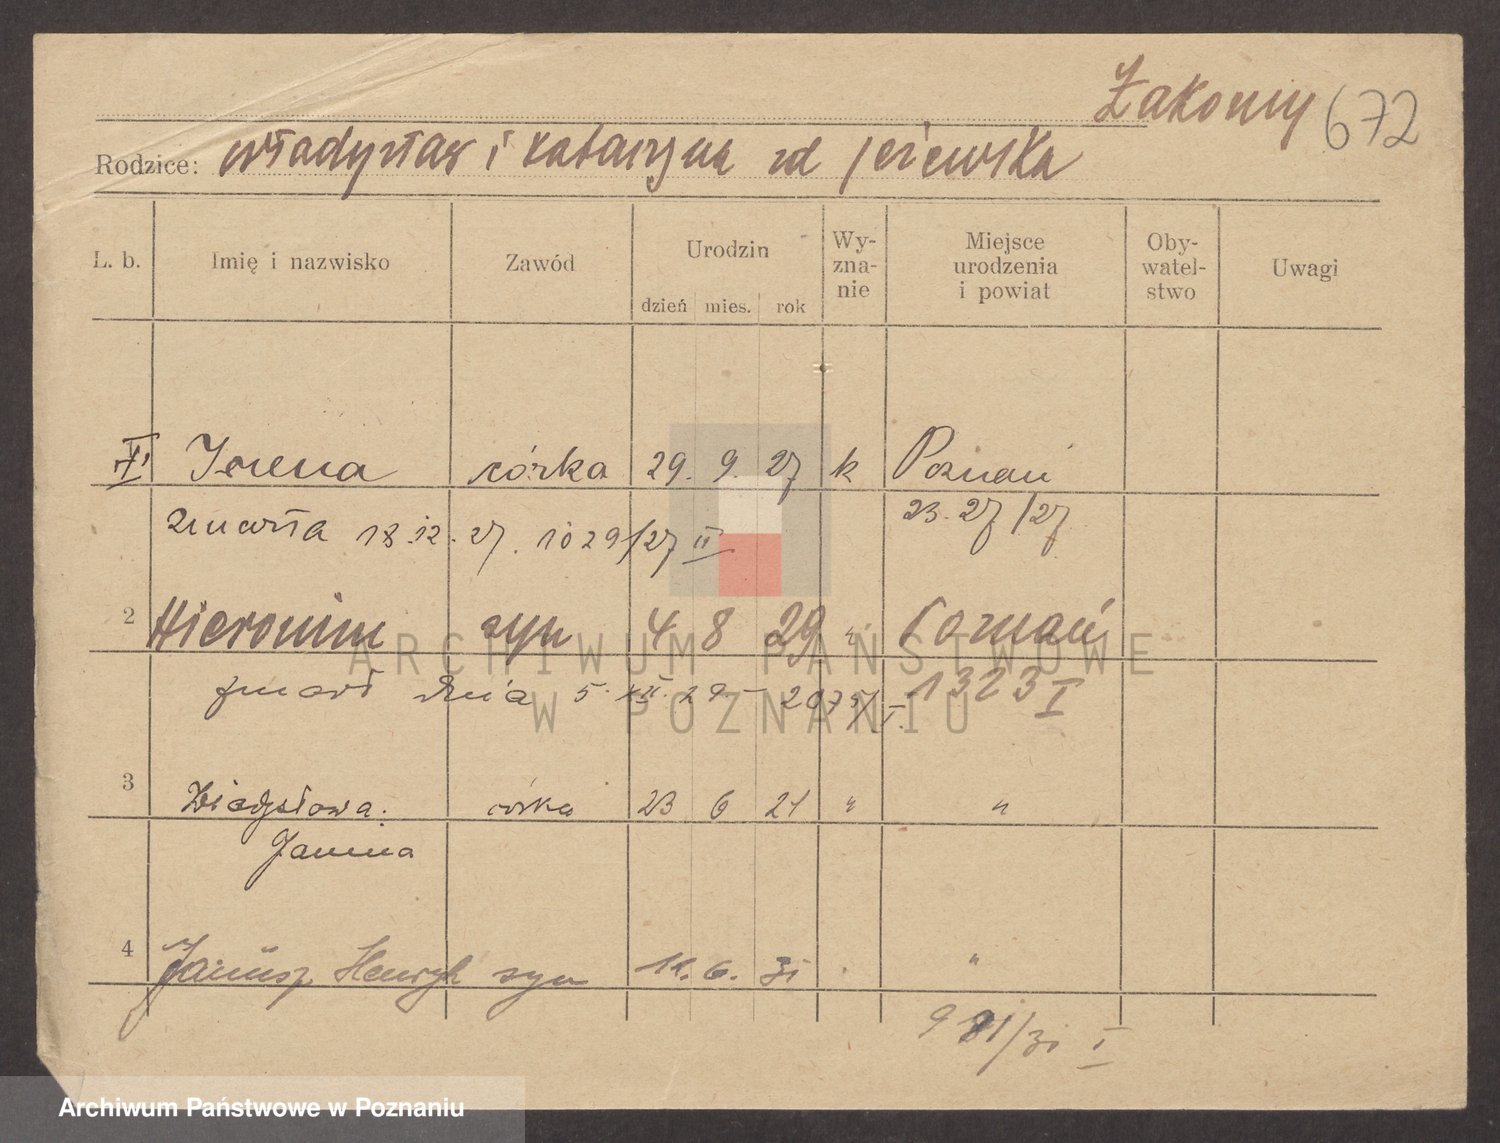 Żakowy 672
Rodzice: Władysław i Katarzyna zd Jeżewska
L. b. Imię i nazwisko Zawód Urodzin dzień mies. rok Wy-zna-nie Miejsce urodzenia i powiat Oby-watel-stwo Uwagi
Irena córka 29. 9. 27 k Poznań
zmarła 18.12.27. 1029/27 II 23.27/27
2 Hieronim syn 4 8 29 " Poznań
zmarł dnia 5. XII. 29 - 2075/I. 1323 I
3 Władysława córka 23 6 21 " "
Janina
4 Janusz Henryk syn 11. 6. 31 "
981/31 I
ARCHIWUM PAŃSTWOWE
W POZNANIU
Archiwum Państwowe w Poznaniu